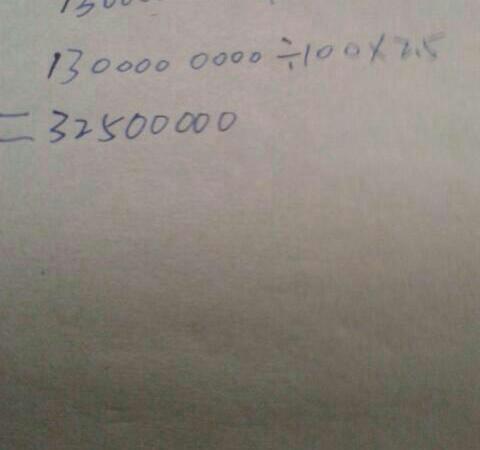 130000 0000÷100×2.5
=32500000